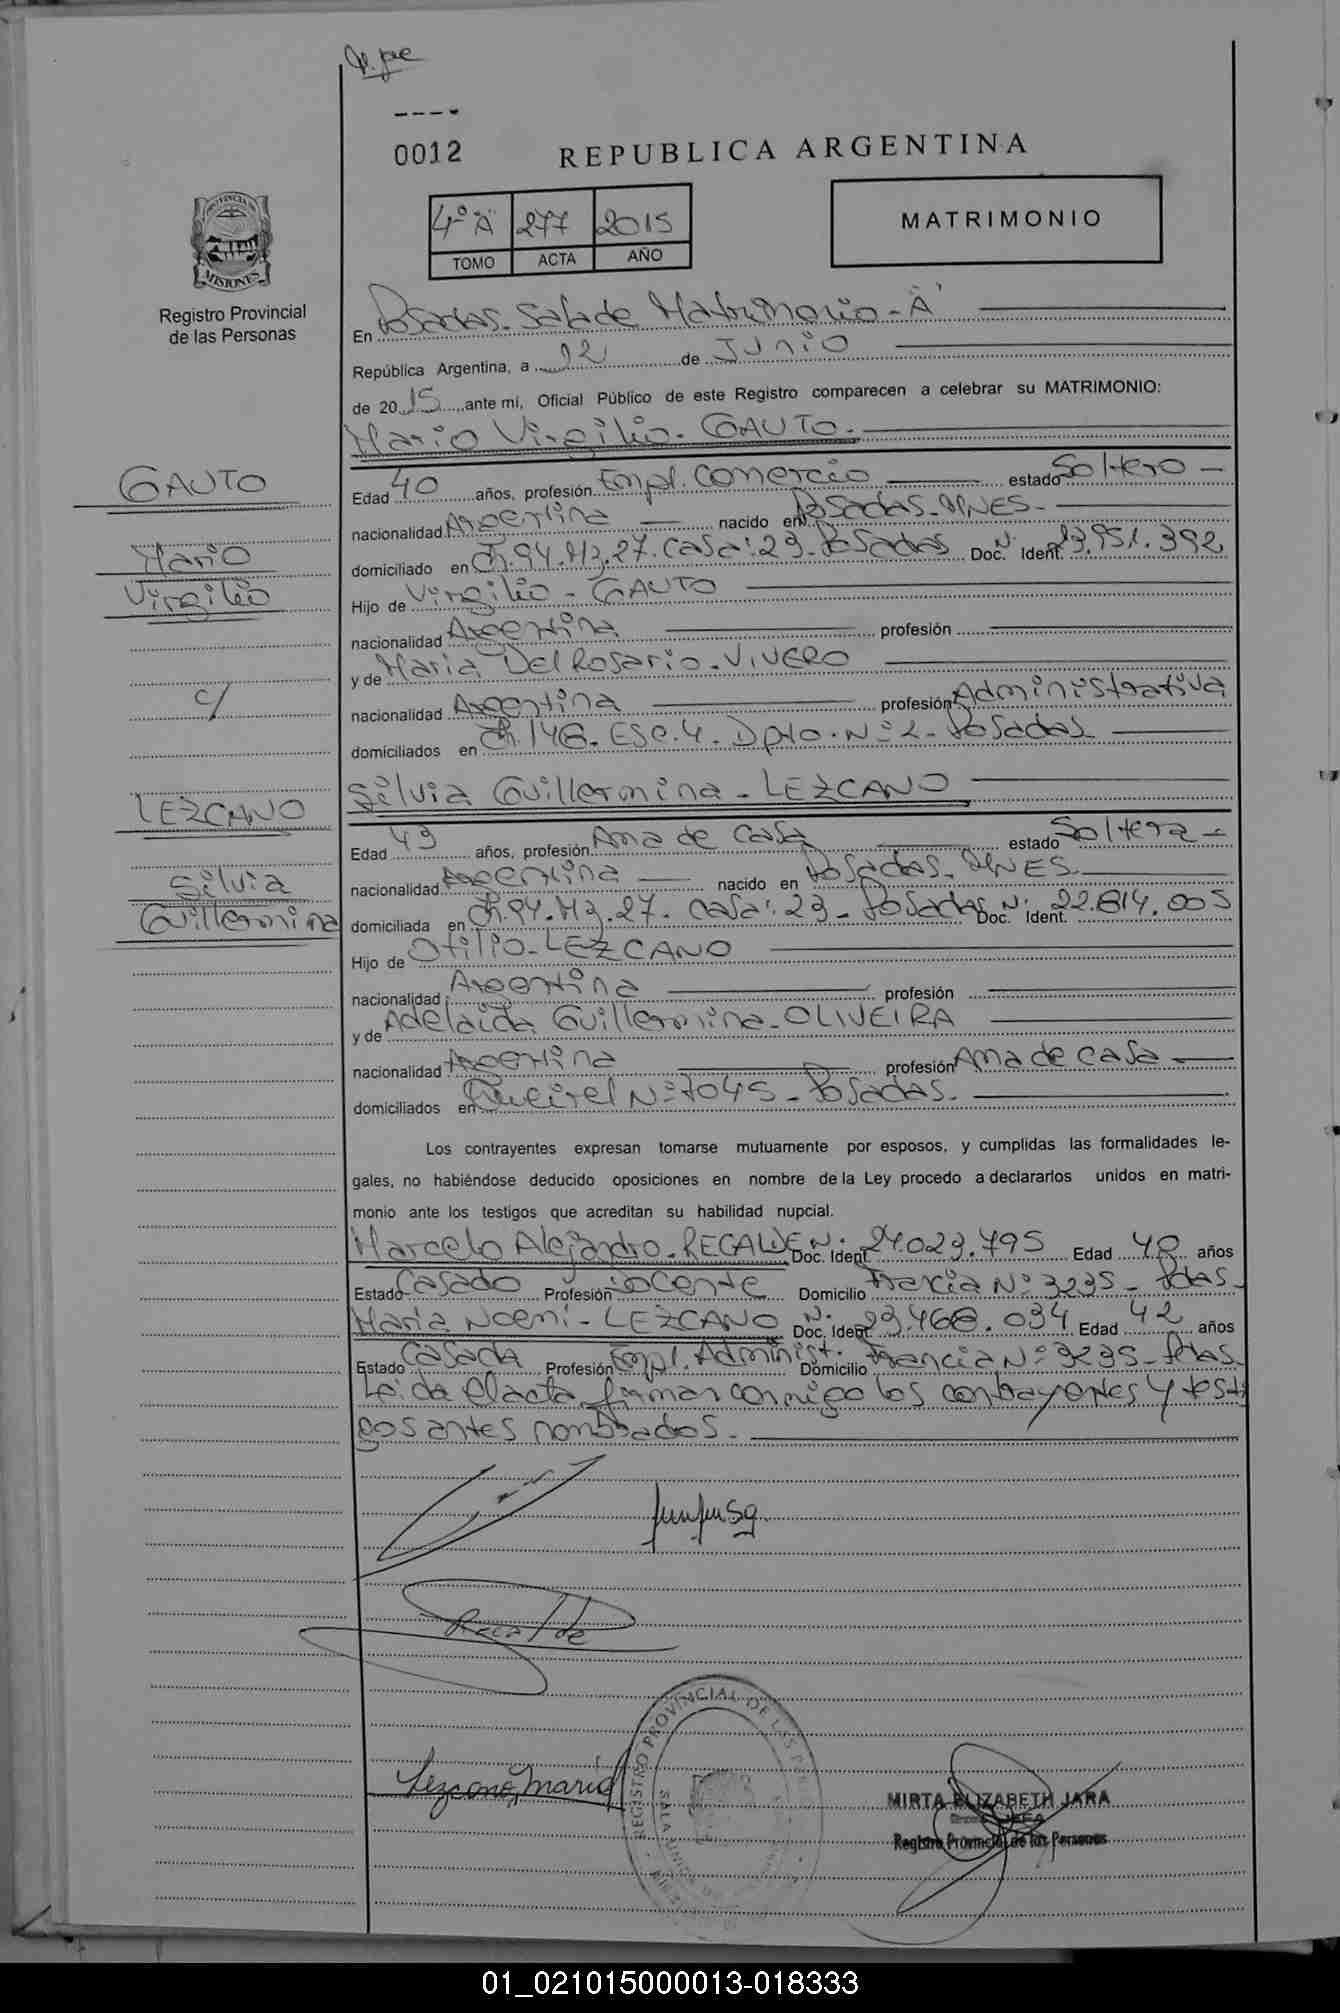 0012
REPUBLICA ARGENTINA
4º "A" 277 2015
TOMO ACTA AÑO
MATRIMONIO
PROVINCIA DE MISIONES
Registro Provincial
de las Personas
En Posadas. Sala de Matrimonio - "A"
República Argentina, a 12 de Junio
de 2015, ante mí, Oficial Público de este Registro comparecen a celebrar su MATRIMONIO:
Mario Virgilio. GAUTO.
GAUTO
Mario
Virgilio
c/
LEZCANO
Silvia
Guillermina
Edad 40 años, profesión Empl. Comercio estado Soltero
nacionalidad Argentina nacido en Posadas. MNES.
domiciliado en Ch. 94. Mz. 27. Casa: 23. Posadas Doc. N. Ident. 23.951.392
Hijo de Virgilio - GAUTO
nacionalidad Argentina profesión
y de Maria Del Rosario. VIVERO
nacionalidad Argentina profesión Administrativa
domiciliados en Ch. 148. Esc. 4. Dpto. Nº 2. Posadas
Silvia Guillermina - LEZCANO
Edad 43 años, profesión Ama de Casa estado Soltera
nacionalidad Argentina nacido en Posadas. MNES.
domiciliada en Ch. 94. Mz. 27. Casa: 23 - Posadas Doc. N. Ident. 22.814.005
Hijo de Otilio - LEZCANO
nacionalidad Argentina profesión
y de Adelaida Guillermina - OLIVEIRA
nacionalidad Argentina profesión Ama de casa
domiciliados en Nº 7045 - Posadas.
Los contrayentes expresan tomarse mutuamente por esposos, y cumplidas las formalidades le-
gales, no habiéndose deducido oposiciones en nombre de la Ley procedo a declararlos unidos en matri-
monio ante los testigos que acreditan su habilidad nupcial.
Marcelo Alejandro. RECALDE N. Doc. Ident. 24.023.795 Edad 40 años
Estado Casado Profesión Docente Domicilio Francia Nº 3235 - Pdas.
Maria Noemi - LEZCANO N. Doc. Ident. 23.468.034 Edad 42 años
Estado Casada Profesión Empl. Administ. Domicilio Francia Nº 3235 - Pdas.
Leida el acta, firman conmigo los contrayentes y testi
gos antes nombrados.
Recalde
Lezcano, Maria
REGISTRO PROVINCIAL DE LAS
MIRTA ELIZABETH JARA
Registro Provincial de las Personas
01_021015000013-018333